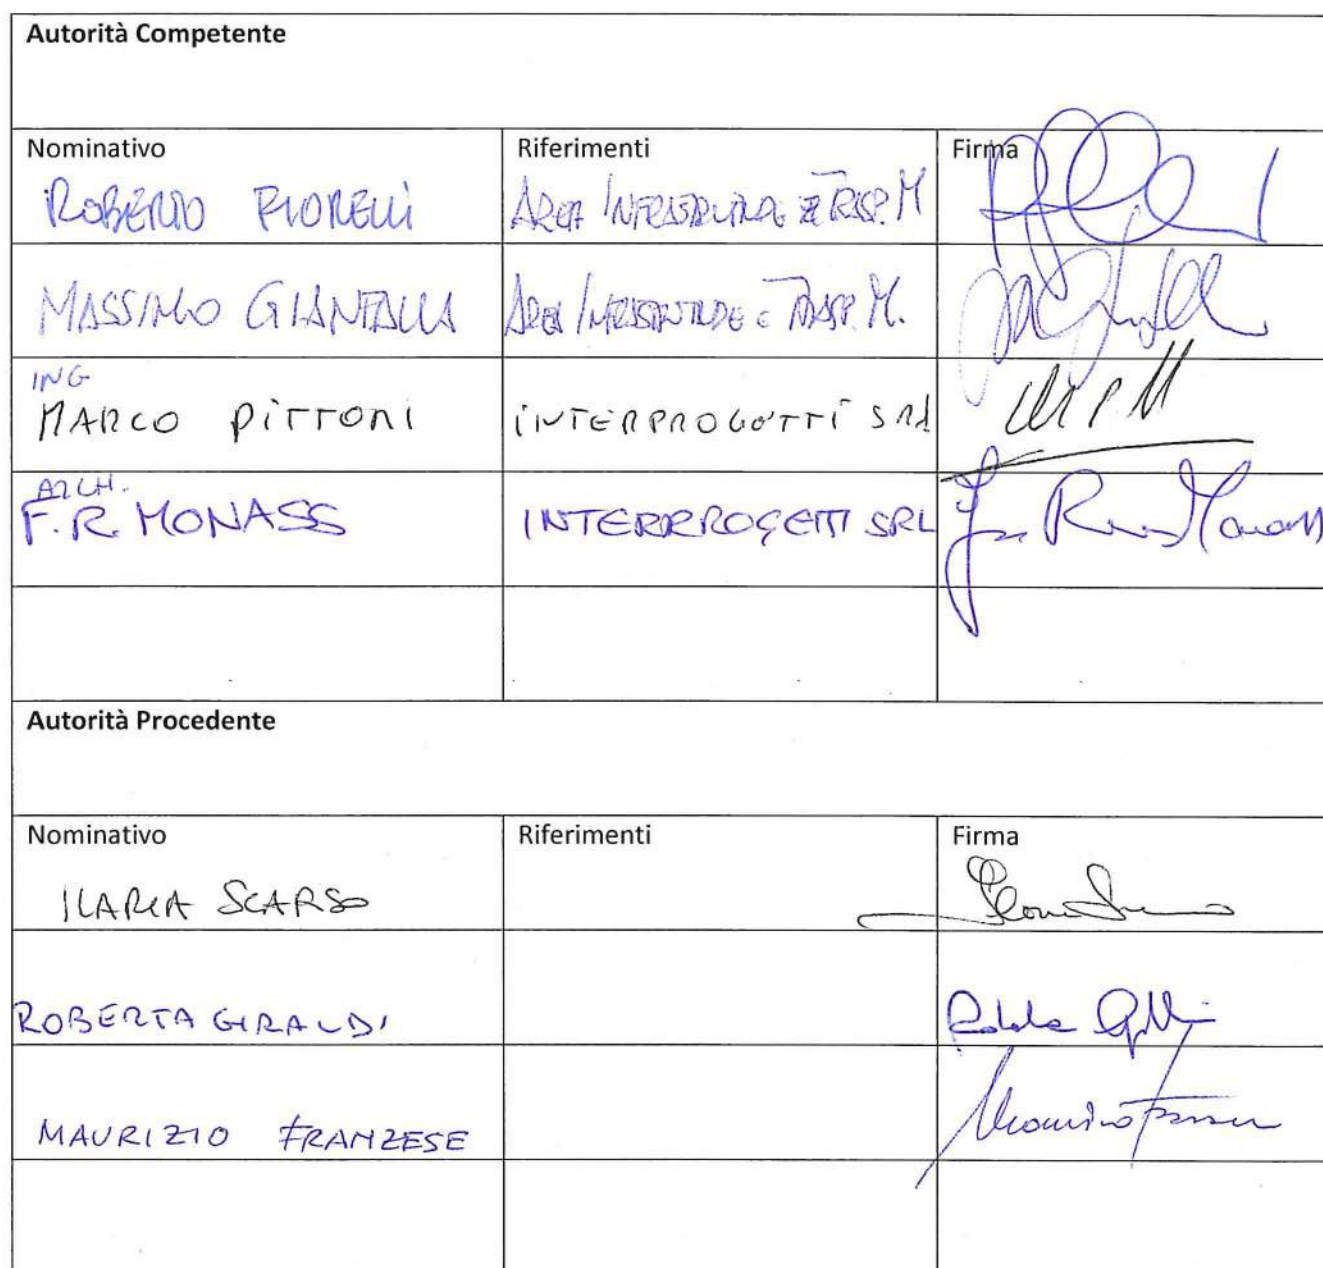 Autorità Competente
Nominativo Riferimenti Firma
ROBERTO FIORELLI AREA INFRASTRUTTURE E TRASP. M
MASSIMO AREA INFRASTRUTTURE E TRASP. M.
ING
MARCO PITTONI INTERPROGETTI SRL
ARCH.
F.R. MONASS INTERPROGETTI SRL
Autorità Procedente
Nominativo Riferimenti Firma
ILARIA SCARSO
ROBERTA GIRALDI
MAURIZIO FRANZESE